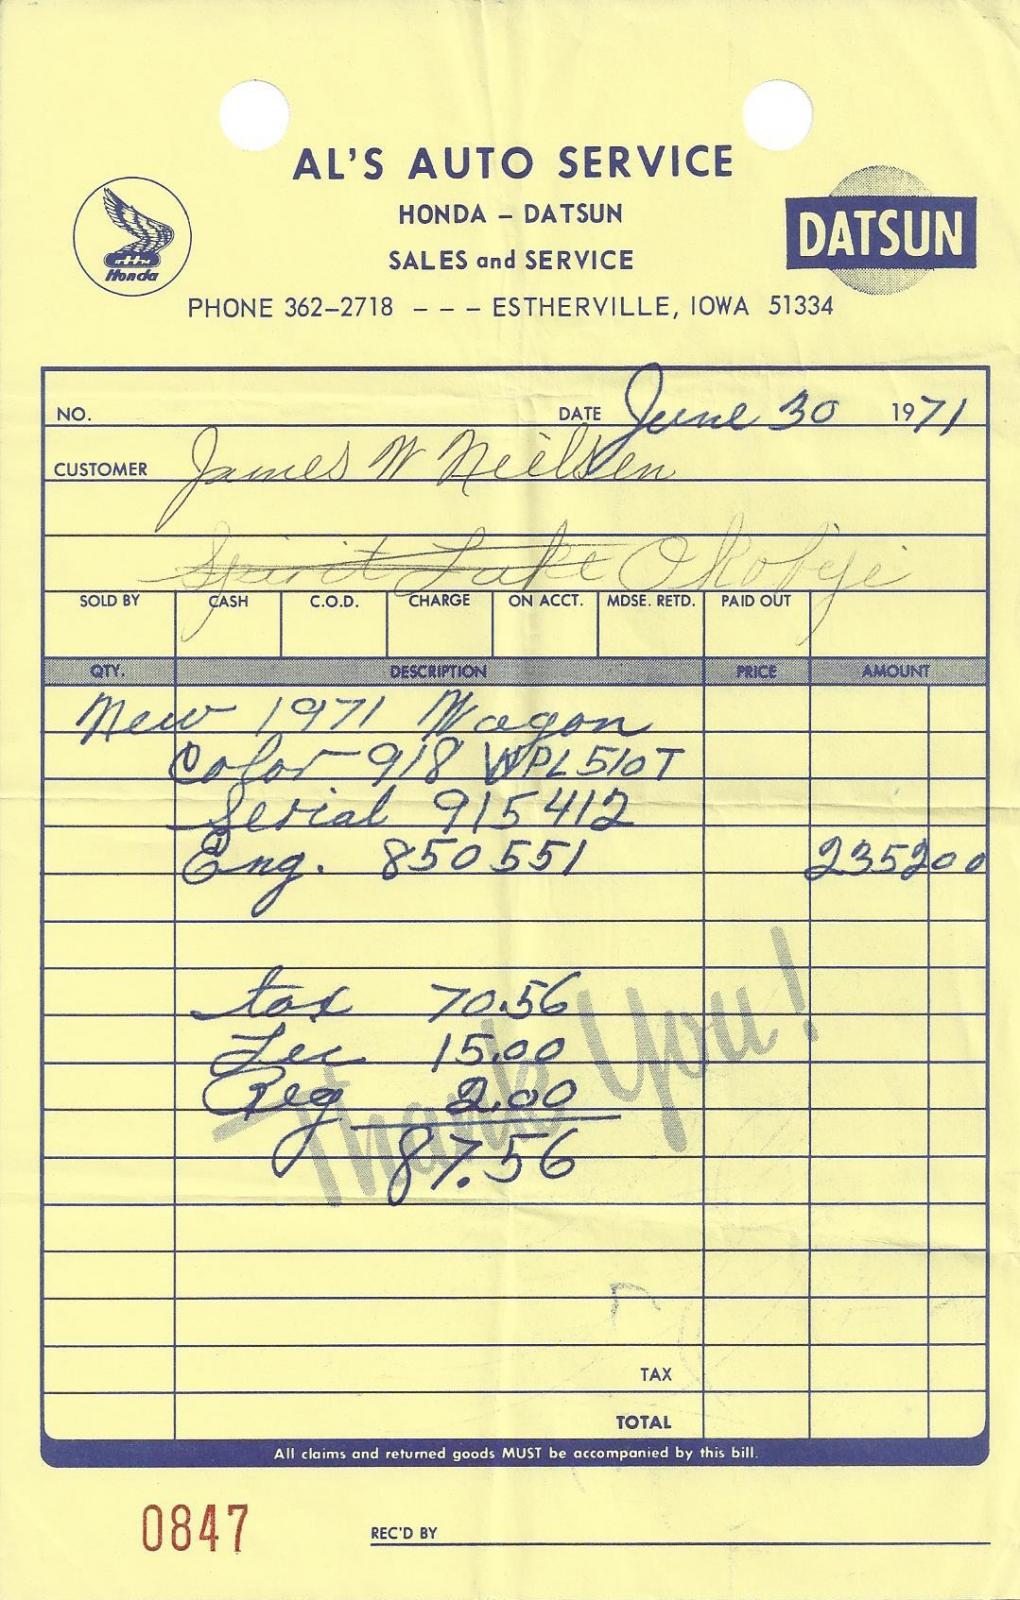 AL'S AUTO SERVICE
HONDA – DATSUN
SALES and SERVICE
Honda
DATSUN
PHONE 362-2718 – – – ESTHERVILLE, IOWA 51334
NO. DATE June 30 1971
CUSTOMER James W Nielsen
Spirit Lake Okoboji
SOLD BY CASH C.O.D. CHARGE ON ACCT. MDSE. RETD. PAID OUT
QTY. DESCRIPTION PRICE AMOUNT
New 1971 Wagon
Color 918 WPL510T
Serial 915412
Eng. 850551 235200
tax 70.56
Lec 15.00
Reg 2.00
87.56
Thank You!
TAX
TOTAL
All claims and returned goods MUST be accompanied by this bill.
0847 REC'D BY